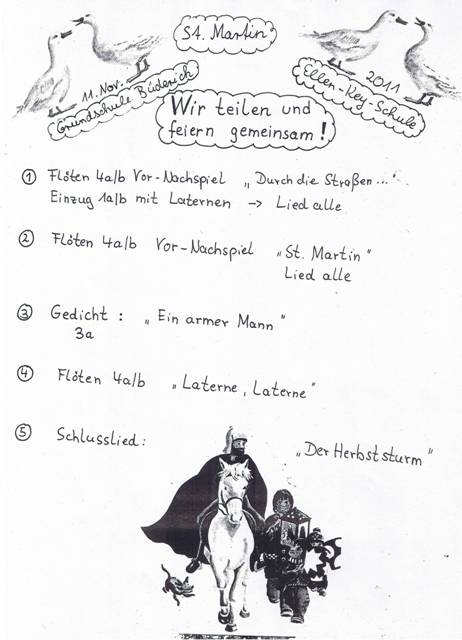 St. Martin
11. Nov.
Grundschule Büderich
2011
Ellen-Key-Schule
Wir teilen und
feiern gemeinsam!
① Flöten 4a/b Vor-Nachspiel „Durch die Straßen..."
Einzug 1a/b mit Laternen → Lied alle
② Flöten 4a/b Vor-Nachspiel „St. Martin"
Lied alle
③ Gedicht: „Ein armer Mann"
3a
④ Flöten 4a/b „Laterne, Laterne"
⑤ Schlusslied: „Der Herbststurm"